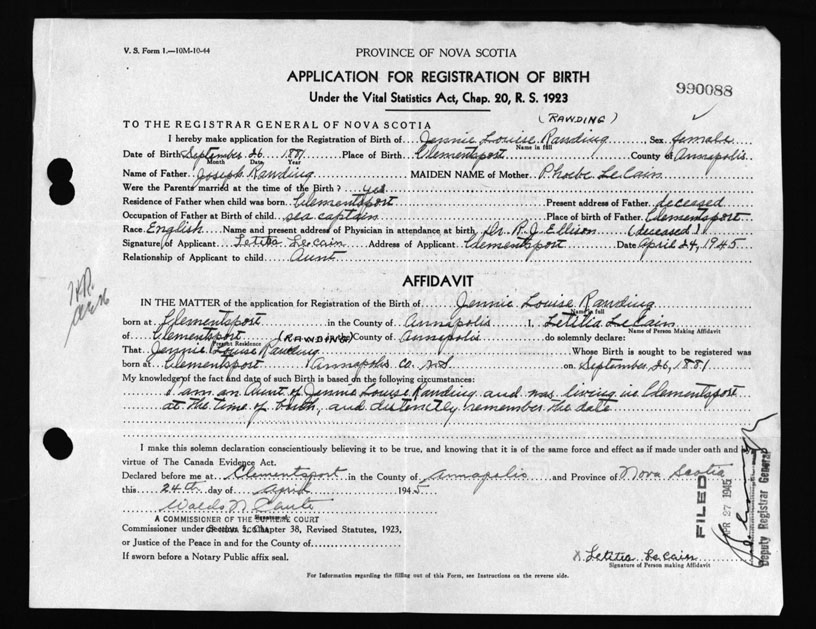 V. S. Form 1.—10M-10-44
PROVINCE OF NOVA SCOTIA
APPLICATION FOR REGISTRATION OF BIRTH
990088
Under the Vital Statistics Act, Chap. 20, R. S. 1923
(RAWDING)
TO THE REGISTRAR GENERAL OF NOVA SCOTIA
I hereby make application for the Registration of Birth of Jennie Louise Rawding Sex female
Name in full
Date of Birth September 26 1881 Place of Birth Clementsport County of Annapolis
Month Date Year
Name of Father Joseph Rawding MAIDEN NAME of Mother Phoebe LeCain
Were the Parents married at the time of the Birth? yes
Residence of Father when child was born Clementsport Present address of Father deceased
Occupation of Father at Birth of child sea captain Place of birth of Father Clementsport
Race English Name and present address of Physician in attendance at birth Dr. R. J. Ellison (deceased)
Signature of Applicant Letitia LeCain Address of Applicant Clementsport Date April 24, 1945
Relationship of Applicant to child Aunt
AFFIDAVIT
IN THE MATTER of the application for Registration of the Birth of Jennie Louise Rawding
Name in full
born at Clementsport in the County of Annapolis I, Letitia LeCain
Name of Person Making Affidavit
of Clementsport County of Annapolis do solemnly declare:
Present Residence
(RAWDING)
That Jennie Louise Rawding Whose Birth is sought to be registered was
born at Clementsport Annapolis Co. N.S on September 26, 1881
My knowledge of the fact and date of such Birth is based on the following circumstances:
I am an Aunt of Jennie Louise Rawding and was living in Clementsport
at the time of birth, and distinctly remember the date
I make this solemn declaration conscientiously believing it to be true, and knowing that it is of the same force and effect as if made under oath and by
virtue of The Canada Evidence Act.
Declared before me at Clementsport in the County of Annapolis and Province of Nova Scotia
this 24th day of April 1945
A COMMISSIONER OF THE SUPREME COURT
Commissioner under Section 5, Chapter 38, Revised Statutes, 1923,
or Justice of the Peace in and for the County of
If sworn before a Notary Public affix seal.
x Letitia LeCain
Signature of Person making Affidavit
For Information regarding the filling out of this Form, see Instructions on the reverse side.
FILED
APR 27 1945
Deputy Registrar General